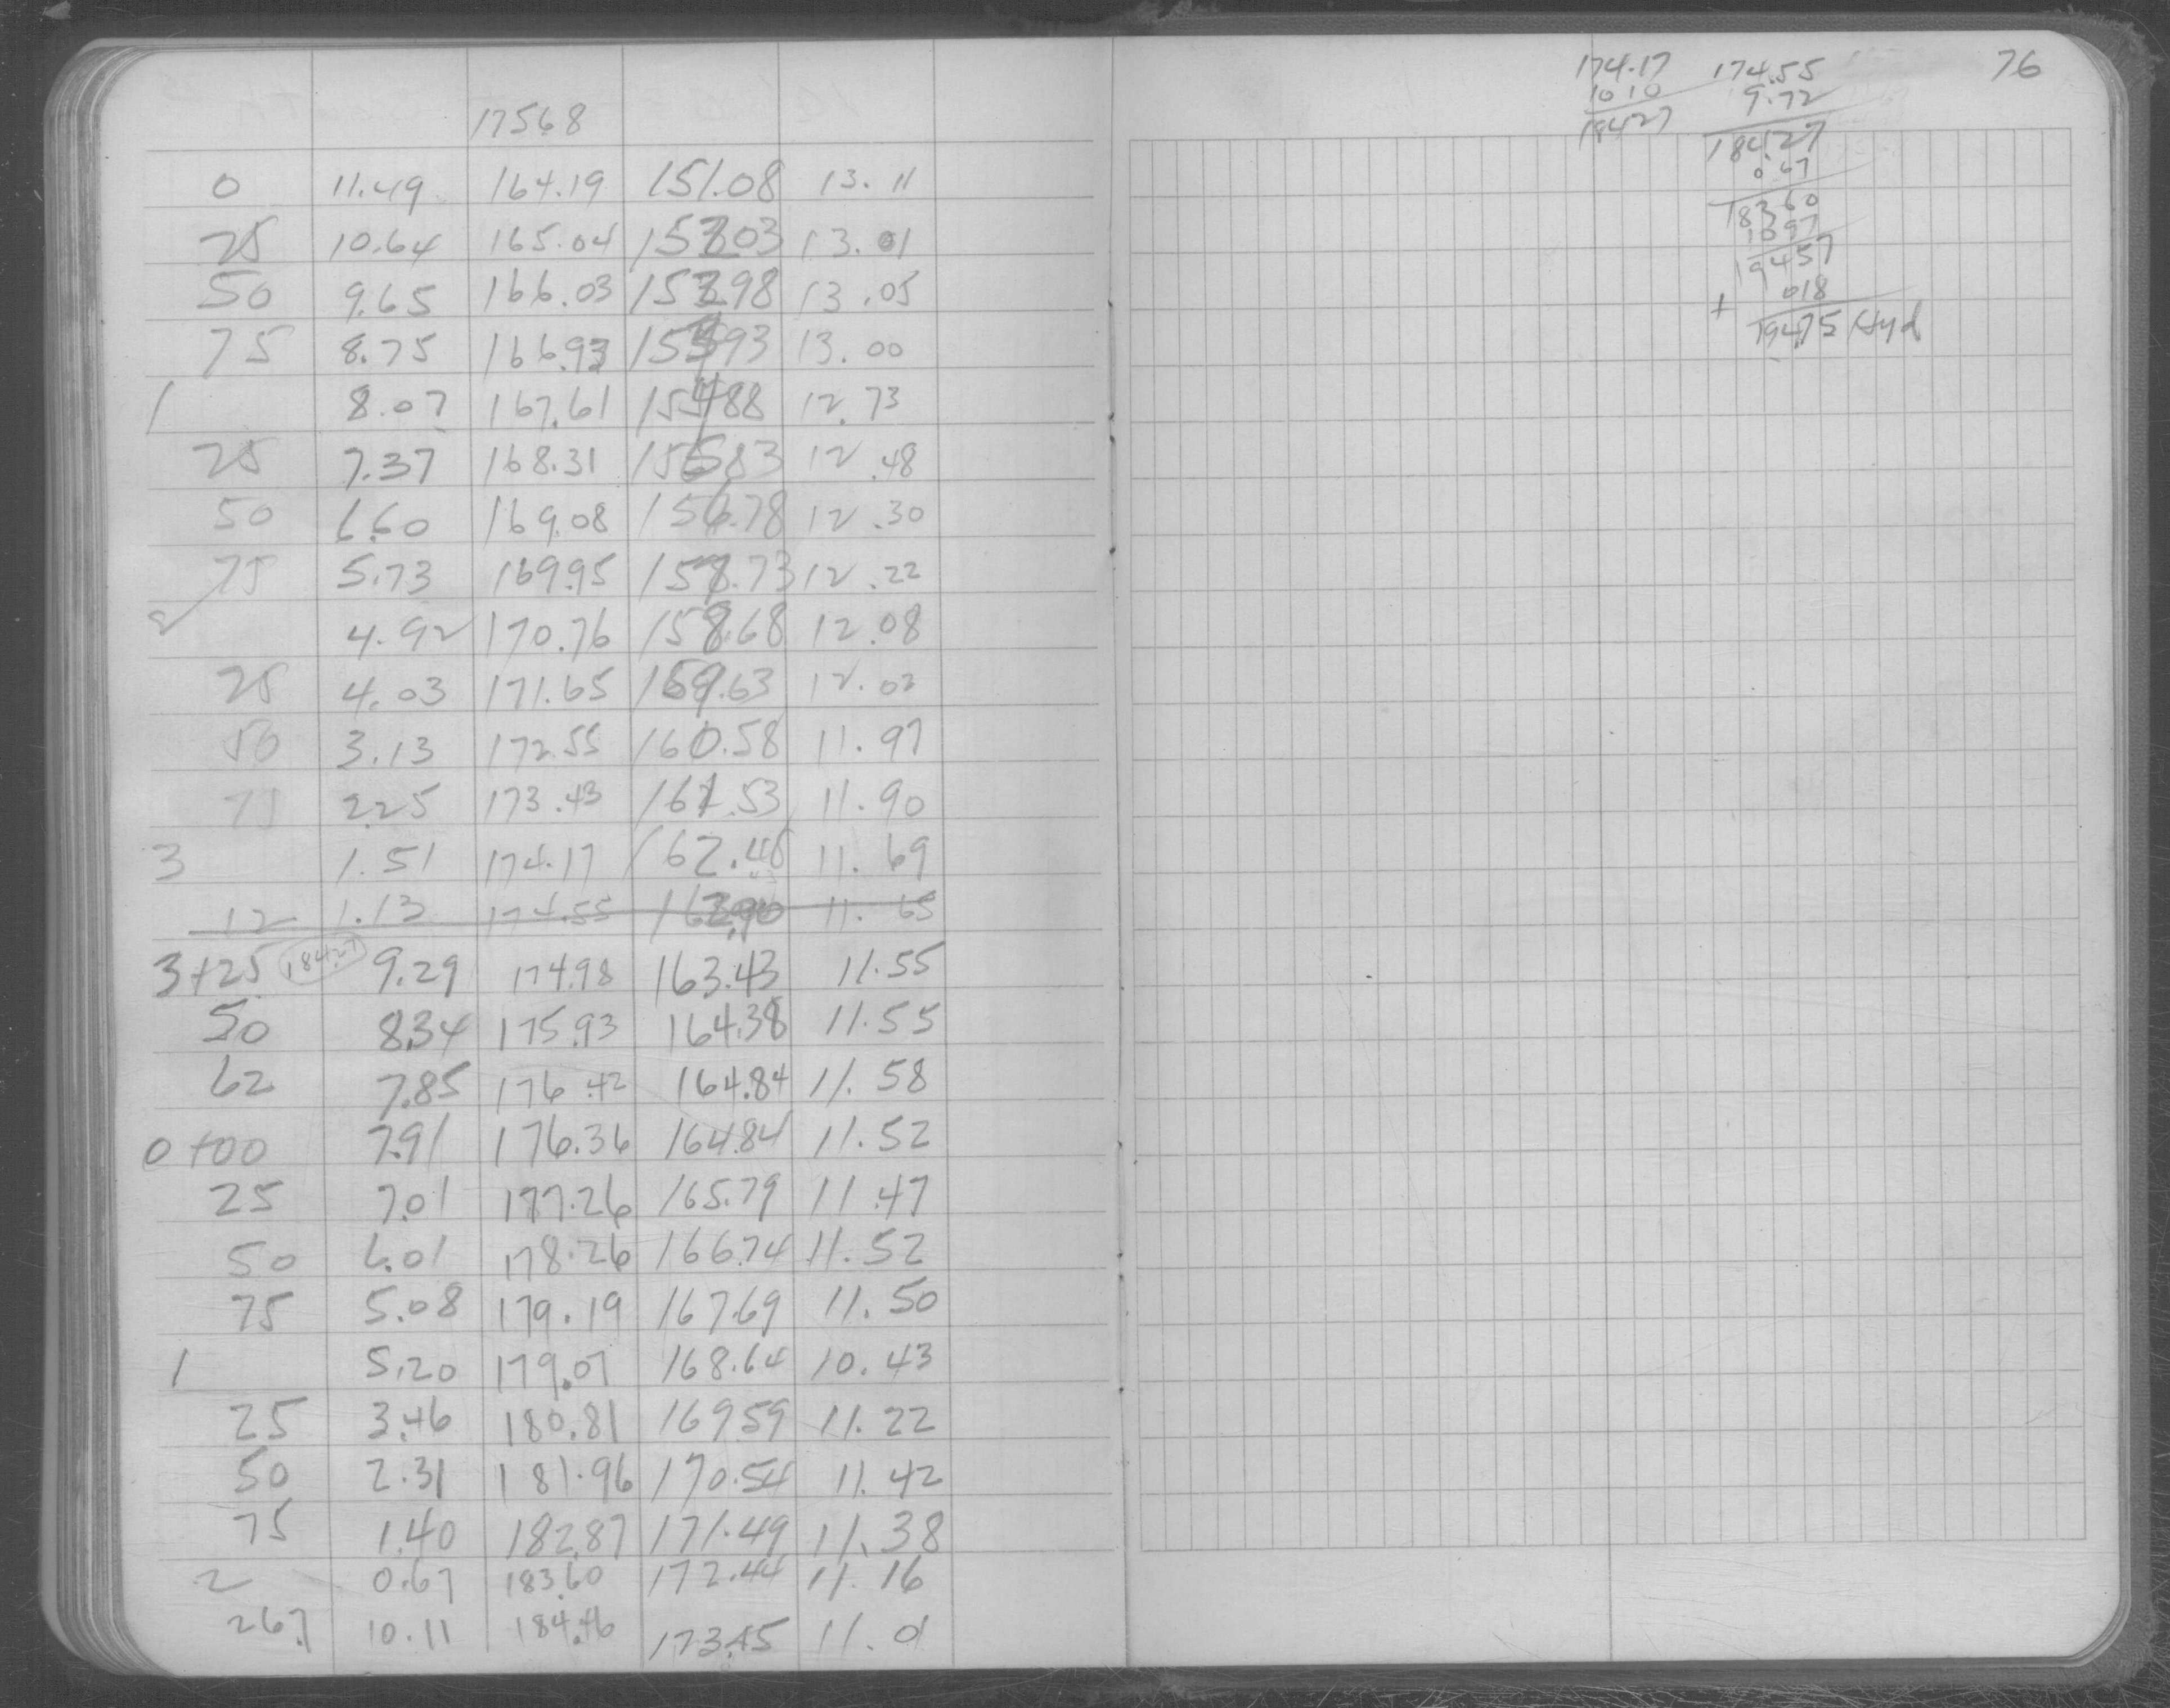 17568
0 11.49 164.19 151.08 13.11
25 10.64 165.04 152.03 13.01
50 9.65 166.03 152.98 13.05
75 8.75 166.93 153.93 13.00
1 8.07 167.61 154.88 12.73
25 7.37 168.31 155.83 12.48
50 6.60 169.08 156.78 12.30
75 5.73 169.95 157.73 12.22
2 4.92 170.76 158.68 12.08
25 4.03 171.65 159.63 12.02
50 3.13 172.55 160.58 11.97
75 2.25 173.43 161.53 11.90
3 1.51 174.17 162.48 11.69
12 1.13 174.55 162.90 11.65
3+25 184.27 9.29 174.98 163.43 11.55
50 8.34 175.93 164.38 11.55
62 7.85 176.42 164.84 11.58
0+00 7.91 176.36 164.84 11.52
25 7.01 177.26 165.79 11.47
50 6.01 178.26 166.74 11.52
75 5.08 179.19 167.69 11.50
1 5.20 179.07 168.64 10.43
25 3.46 180.81 169.59 11.22
50 2.31 181.96 170.54 11.42
75 1.40 182.87 171.49 11.38
2 0.67 183.60 172.44 11.16
267 10.11 184.46 173.45 11.01
76
174.17
10 10
18427
174.55
9.72
184.27
0 67
18360
1097
19457
+ 018
194.75 Hyd